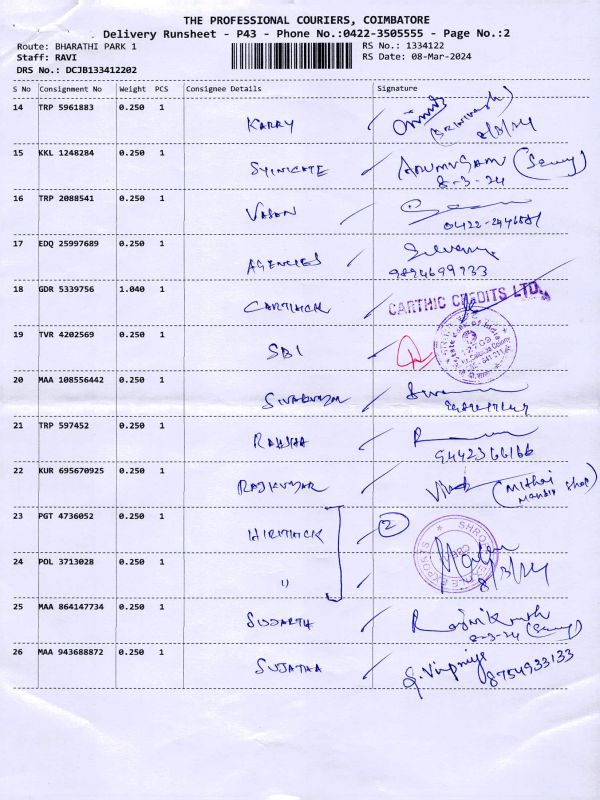 THE PROFESSIONAL COURIERS, COIMBATORE
Delivery Runsheet - P43 - Phone No.:0422-3505555 - Page No.:2
Route: BHARATHI PARK 1 RS No.: 1334122
Staff: RAVI RS Date: 08-Mar-2024
DRS No.: DCJB133412202
S No Consignment No Weight PCS Consignee Details Signature
14 TRP 5961883 0.250 1
KARRY (Srinivash) 8/3/24
15 KKL 1248284 0.250 1
ARUMUGAM
8-3-24
16 TRP 2088541 0.250 1
VASAN
17 EDQ 25997689 0.250 1
AGENCIES
9894699733
18 GDR 5339756 1.040 1
CARTHICK CARTHIC CREDITS LTD.
19 TVR 4202569 0.250 1
SBI State Bank of India
20 MAA 108556442 0.250 1
21 TRP 597452 0.250 1
9442366166
22 KUR 695670925 0.250 1
RAJKUMAR (Mithai
Mandir Shop)
23 PGT 4736052 0.250 1
HIRTHICK 2
24 POL 3713028 0.250 1
" 8/3/24
25 MAA 864147734 0.250 1
SIDDARTH Rajnikanth
8-3-24
26 MAA 943688872 0.250 1
SUJATHA 8754933133